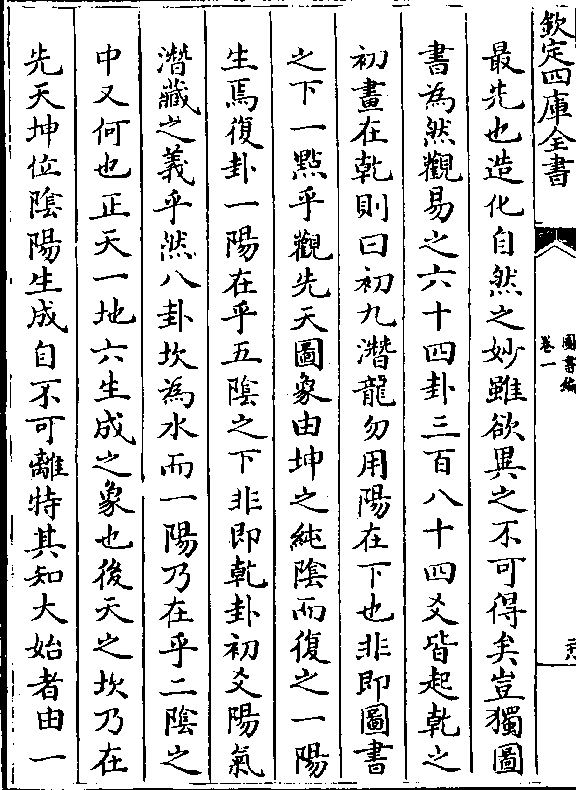 欽定四庫全書
圖書編
卷一
最先也造化自然之妙雖欲異之不可得矣豈獨圖
書為然觀易之六十四卦三百八十四爻皆起乾之
初畫在乾則曰初九潛龍勿用陽在下也非即圖書
之下一點乎觀先天圖象由坤之純陰而復之一陽
生焉復卦一陽在乎五陰之下非即乾卦初爻陽氣
潛藏之義乎然八卦坎為水而一陽乃在乎二陰之
中又何也正天一地六生成之象也後天之坎乃在
先天坤位陰陽生成自不可離特其知大始者由一